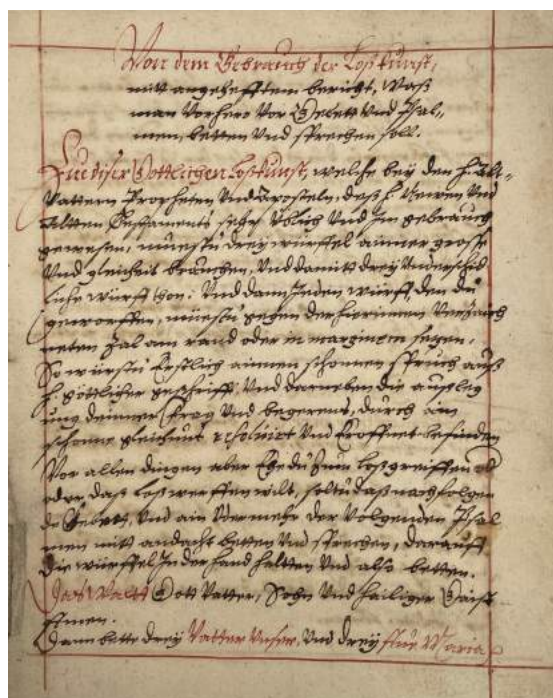 Von dem Gebrauch der Loßkunst,
mitt angehefftem bericht, Waß
man Vorhero Vor Gebett Vnd Psal-
men, betten Vnd sprechen soll.
Zue diser Göttlichen Loßkunst, welche bey den H. Alt-
Vattern Propheten Vnd Aposteln, deß H. Newen Vnd
Altten Testaments sehr Üblich Vnd Im gebrauch
gewesen, muestu drey würffel ainner grosse
Vnd gleicheit brauchen, Vnd damitt drey Vnderschid
liche würff thon: Vnd dann Jeden würff, den du
geworffen, muestu gegen der hierinnen Verzaich
neten Zal am rand oder in margine setzen,
So würstu Erstlich ainnen schonnen spruch auß
H. göttlicher geschrifft, Vnd darneben die außleg
ung deinner Frag Vnd begerens, durch ain
schonne gleichnuß resoluirt Vnd Eroffnet befinden
Vor allen dingen aber Ehe du Zum Loßgreiffen
oder daß Loß werffen wilt, soltu daß nachfolgen
de Gebett, Vnd ain oder mehr der Volgenden Psal
men mitt andacht betten Vnd sprechen, darauff
die würffel In der hand haltten Vnd also betten.
Das Waltt Gott Vatter, Sohn Vnd Hailiger Gaist
Amen.
Dann bette drey Vatter Vnser, Vnd drey Aue Maria